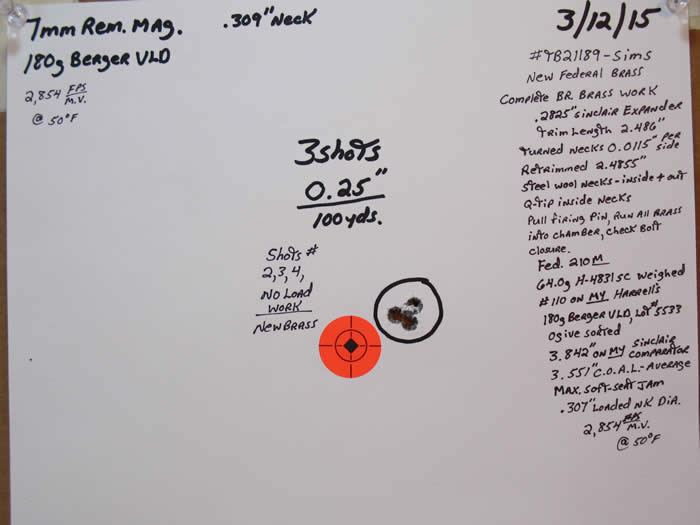 7mm Rem. Mag.
.309" Neck
180g Berger VLD
2,854 FPS
M.V.
@ 50°F
3/12/15
#TB21189-Sims
New Federal Brass
Complete BR. Brass Work
.2825" Sinclair Expander
Trim Length 2.486"
Turned Necks 0.0115" per side
Retrimmed 2.4855"
Steel wool necks-inside + out
Q-tip inside necks
Pull firing pin, run all brass
into chamber, check bolt
closure.
Fed. 210M
64.0g H-4831SC weighed
#110 on my Harrell's
180g Berger VLD, Lot# 5533
Ogive sorted
3.842" on my Sinclair
Comparator
3.551" C.O.A.L.-Average
Max. Soft-Seat Jam
.307" Loaded NK Dia.
2,854 FPS
M.V.
@ 50°F
3 shots
0.25"
100 yds.
Shots #
2,3,4,
No Load
Work
New Brass